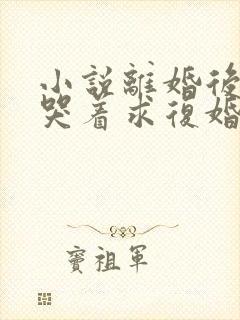 小說離婚後
哭着求復婚
竇祖軍